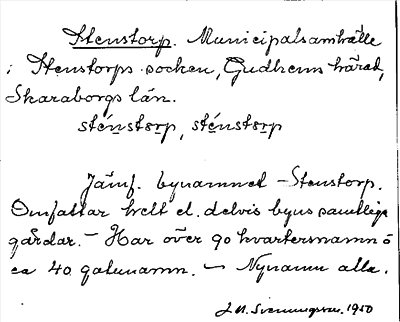 Stenstorp. Municipalsamhälle
i Stenstorps socken, Gudhems härad,
Skaraborgs län.
sténstɔrp, sténstɔrp
Jämf. bynamnet - Stenstorp.
Omfattar helt el. delvis byns samtliga
gårdar. - Har över 90 kvartersnamn o
ca 40 gatunamn. - Nynamn alla.
1950